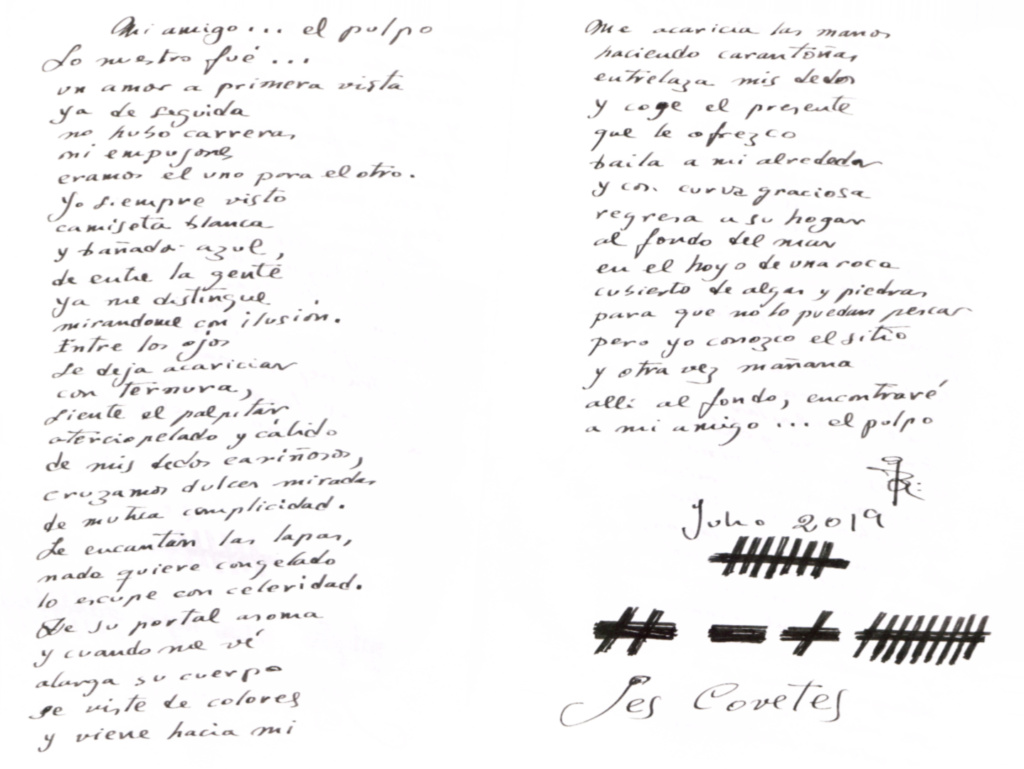 Mi amigo... el pulpo
Lo nuestro fué...
un amor a primera vista
ya de seguida
no hubo carreras
ni empujones
eramos el uno para el otro.
Yo siempre visto
camiseta blanca
y bañador azul,
de entre la gente
ya me distingue
mirandome con ilusión.
Entre los ojos
se deja acariciar
con ternura,
siente el palpitar
aterciopelado y cálido
de mis dedos cariñosos,
cruzamos dulces miradas
de mutua complicidad.
Le encantan las lapas,
nada quiere congelado
lo escupe con celeridad.
De su portal asoma
y cuando me vé
alarga su cuerpo
se viste de colores
y viene hacia mi
Me acaricia las manos
haciendo carantoñas
entrelaza mis dedos
y coge el presente
que le ofrezco
baila a mi alrededor
y con curva graciosa
regresa a su hogar
al fondo del mar
en el hoyo de una roca
cubierto de algas y piedras
para que no lo puedan pescar
pero yo conozco el sitio
y otra vez mañana
alli al fondo, encontraré
a mi amigo... el pulpo
Julio 2019
Ses Covetes